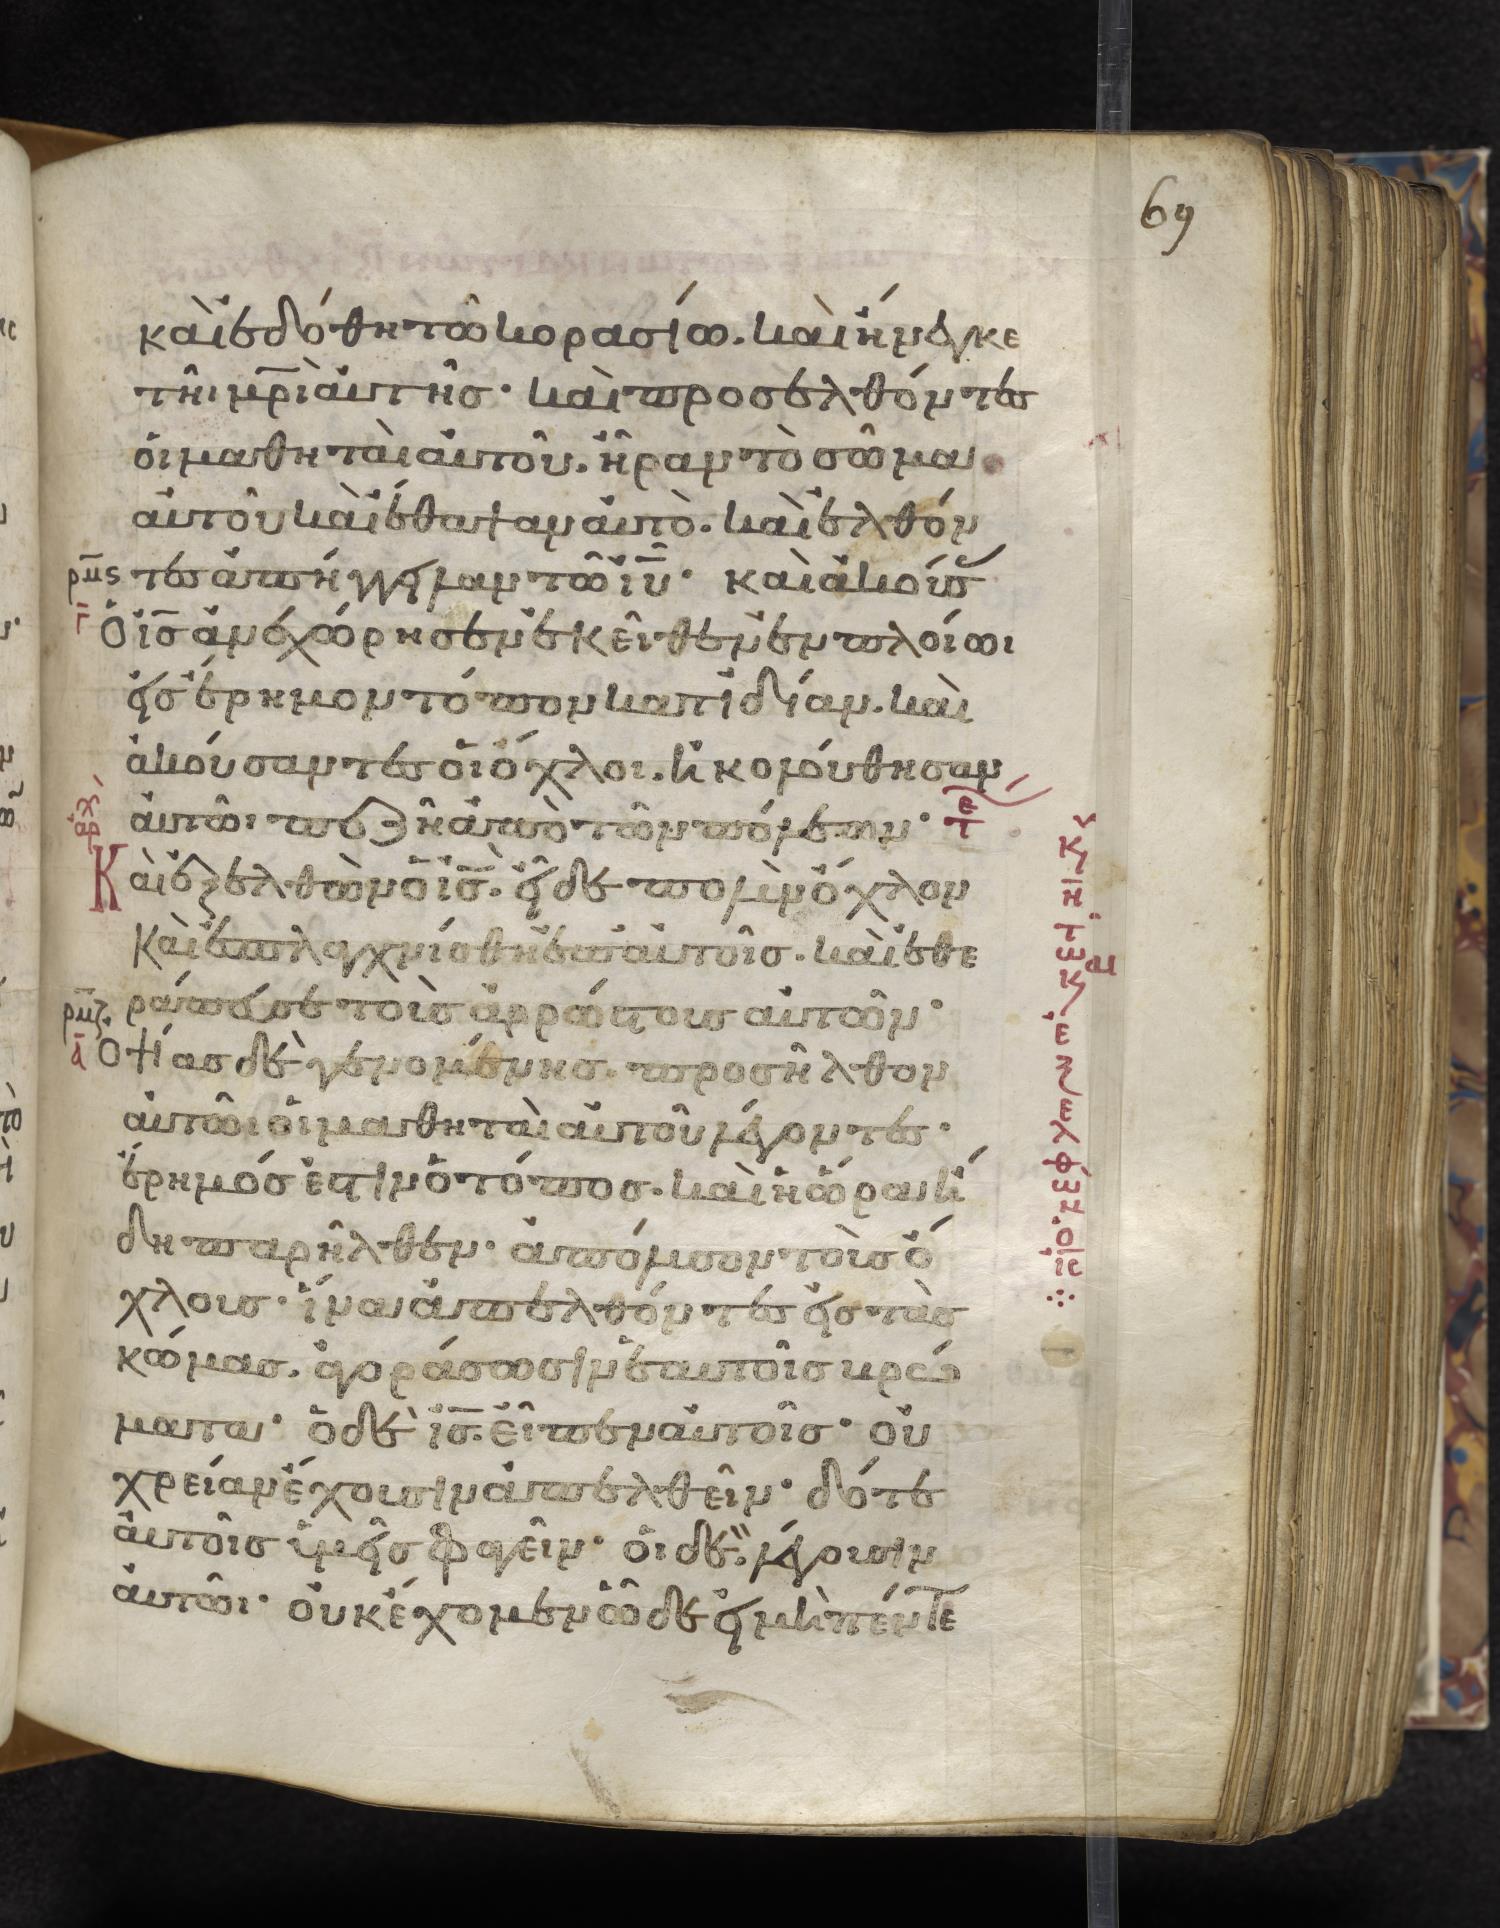 69
καὶ ἐδόθη τῶ κορασίω. καὶ ἤνεγκε
τῆι μ̅ρ̅ὶ αὐτῆς· καὶ προσελθόντες
οἱ μαθηταὶ αὐτοῦ. ἦραν τὸ σῶμα
αὐτοῦ καὶ ἔθαψαν αὐτὸ. καὶ ἐλθόν
ρμς τες ἀπήγγειλαν τῶ ἰ̅υ̅· καὶ ἀκούσ
γ ὁ ἰ̅ς̅ ἀνεχώρησεν ἐκεῖθεν ἐν πλοίωι
εἰς ἔρημον τόπον κατ ἰδίαν. καὶ
ἀκούσαντες οἱ ὄχλοι. ἠκολούθησαν
ἀρχ αὐτῶι πεζῆ ἀπὸ τῶν πόλεων· τε
Καὶ ἐξελθὼν ὁ ἰ̅ς̅. εἶδε πολὺν ὄχλον
καὶ ἐσπλαγχνίσθη ἐπ αὐτοῖς. καὶ ἐθε
ράπευσε τοὺς ἀρρώστους αὐτῶν·
ρμζ
α ὀψίας δὲ γενομένης. προσῆλθον
αὐτῶι οἱ μαθηταὶ αὐτοῦ λέγοντες·
ἔρημός ἐστιν ὁ τόπος. καὶ ἡ ὥρα ἤ
δη παρῆλθεν· ἀπόλυσον τοὺς ὄ
χλους· ἵνα ἀπελθόντες εἰς τὰς
κώμας. ἀγοράσωσιν ἑαυτοῖς βρώ
ματα· ὁ δὲ ἰ̅ς̅. εἶπεν αὐτοῖς· οὐ
χρείαν ἔχουσιν ἀπελθεῖν· δότε
αὐτοῖς ὑμεῖς φαγεῖν· οἱ δὲ. λέγουσιν
αὐτῶι· οὐκ ἔχομεν ὧδε εἰ μὴ πέντε